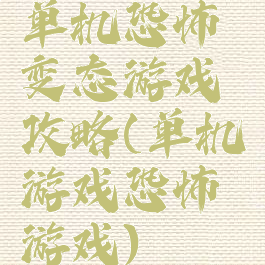 单机恐怖
变态游戏
攻略(单机
游戏恐怖
游戏)